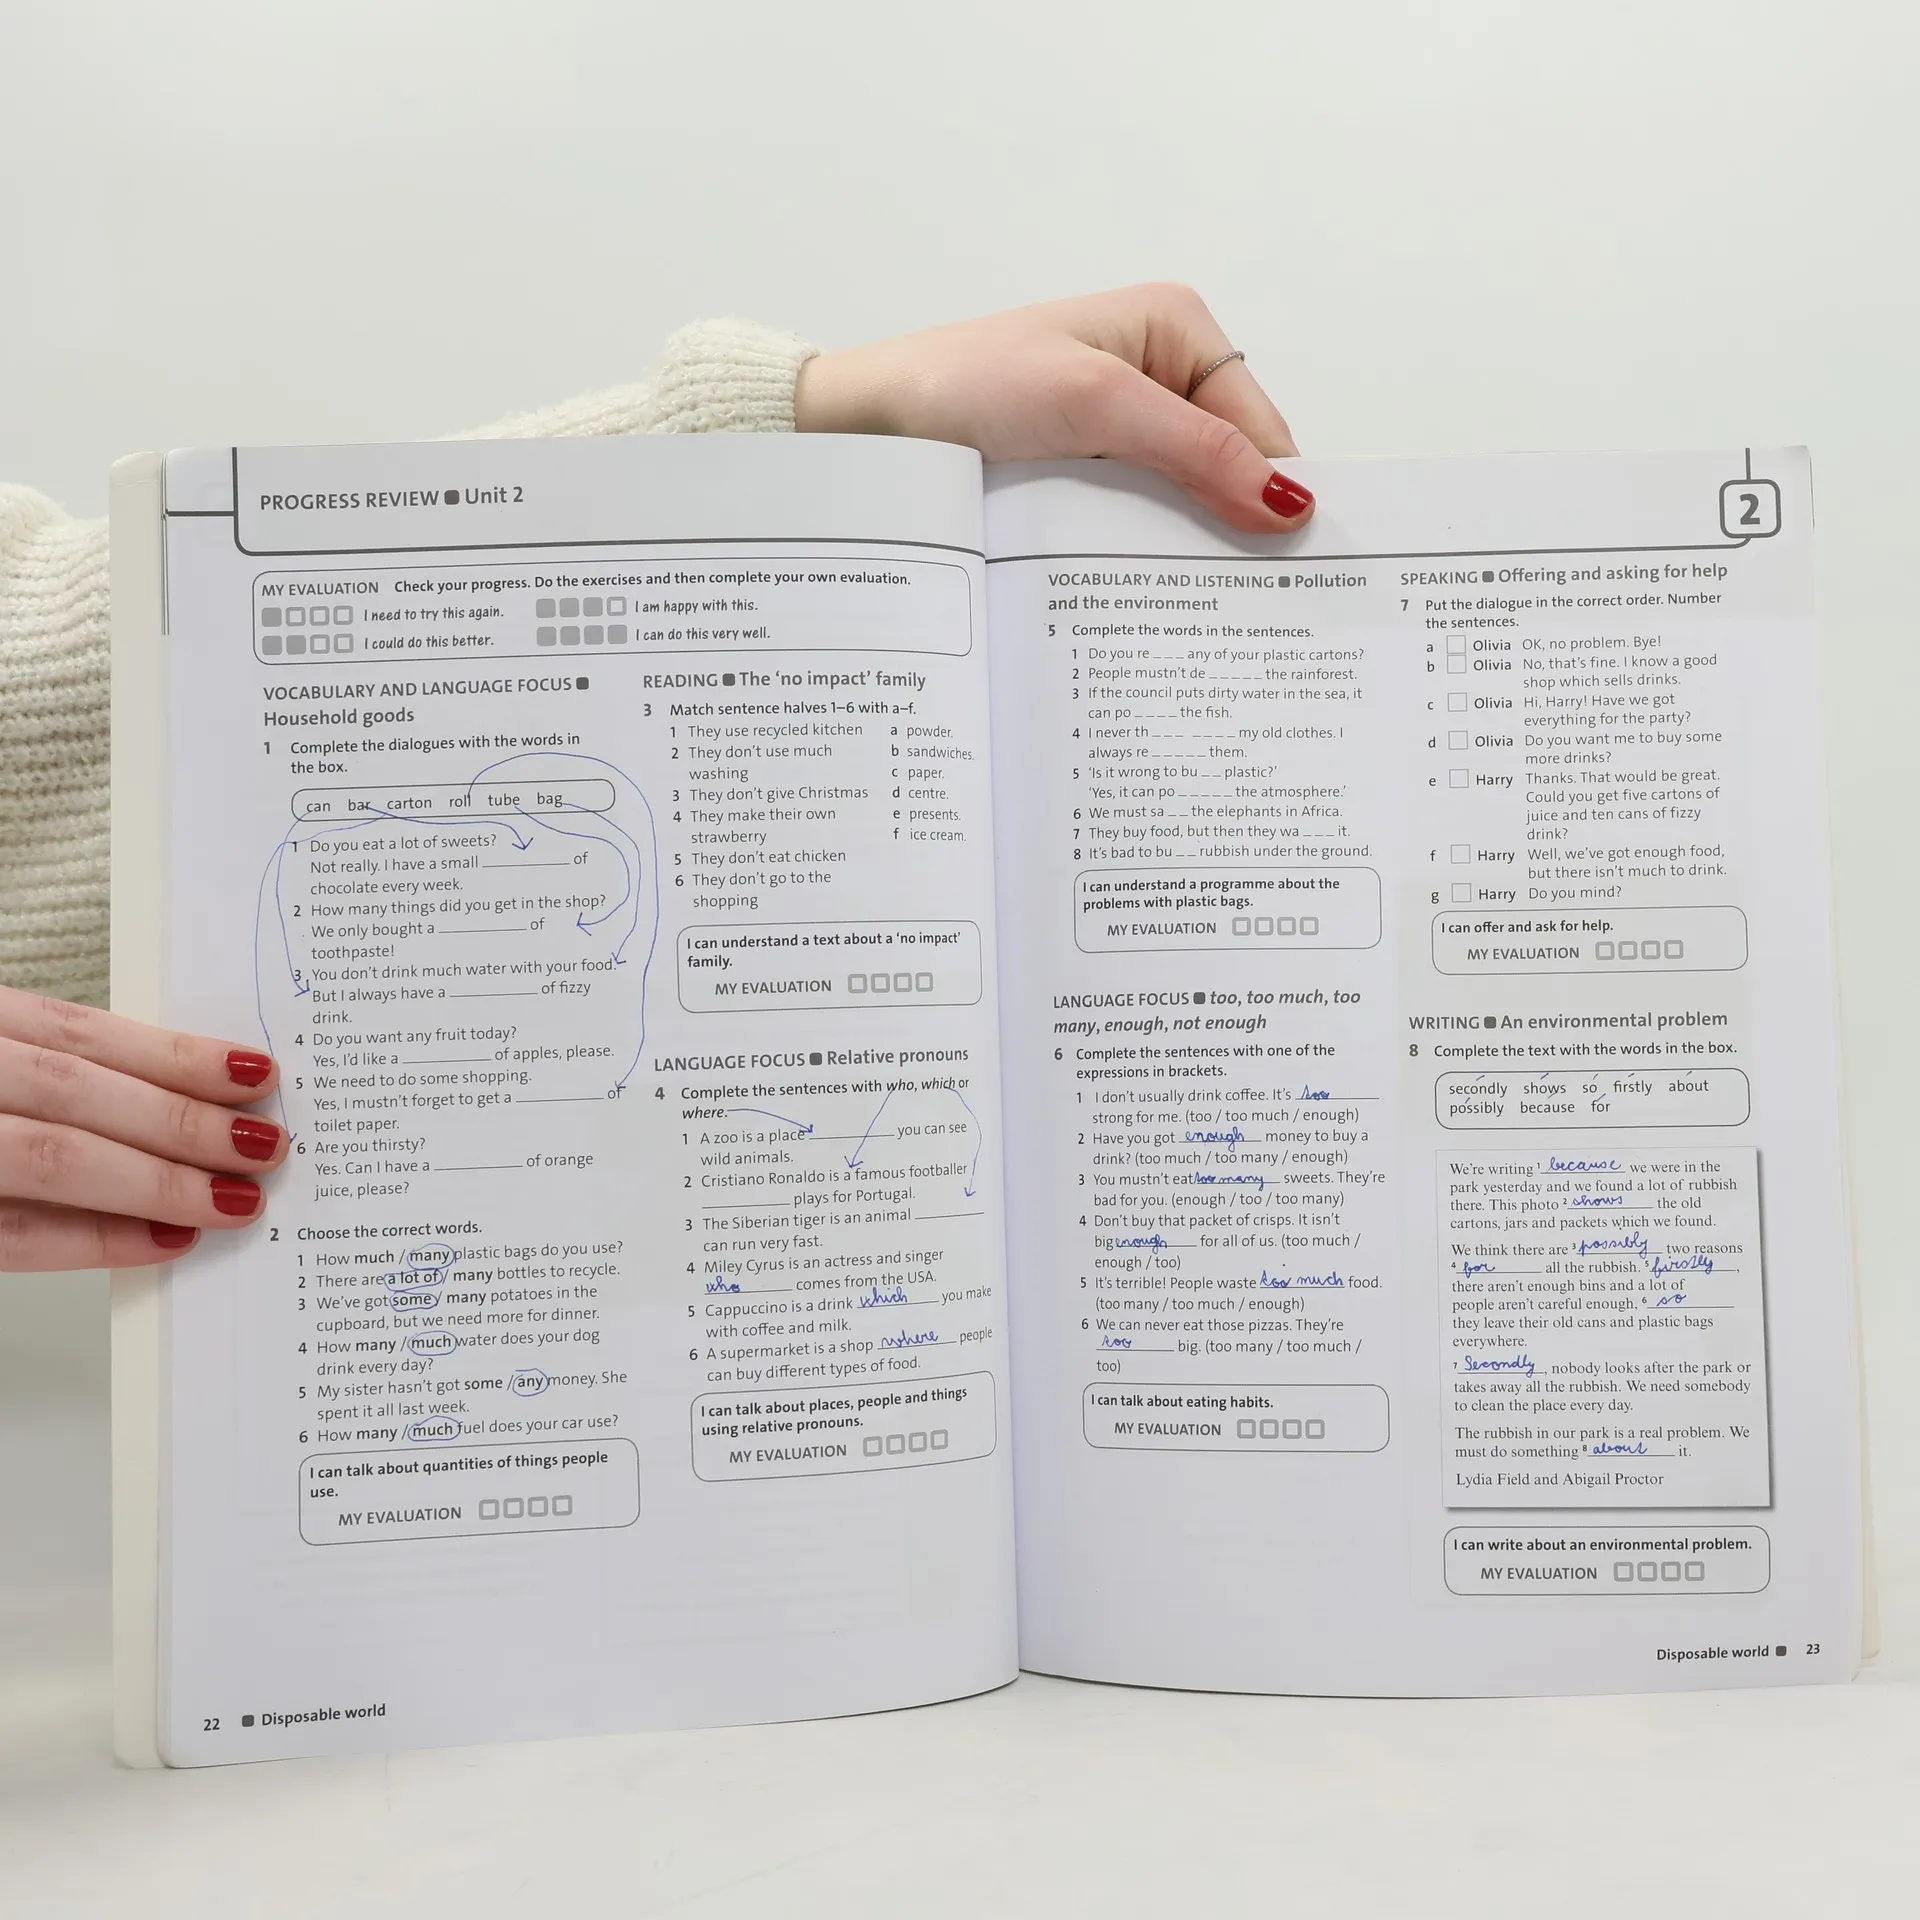 PROGRESS REVIEW ■ Unit 2
MY EVALUATION Check your progress. Do the exercises and then complete your own evaluation.
I need to try this again.
I am happy with this.
I could do this better.
I can do this very well.
VOCABULARY AND LANGUAGE FOCUS ■
Household goods
1 Complete the dialogues with the words in
the box.
can bar carton roll tube bag
1 Do you eat a lot of sweets?
Not really. I have a small ________ of
chocolate every week.
2 How many things did you get in the shop?
We only bought a ________ of
toothpaste!
3 You don't drink much water with your food.
But I always have a ________ of fizzy
drink.
4 Do you want any fruit today?
Yes, I'd like a ________ of apples, please.
5 We need to do some shopping.
Yes, I mustn't forget to get a ________ of
toilet paper.
6 Are you thirsty?
Yes. Can I have a ________ of orange
juice, please?
2 Choose the correct words.
1 How much / many plastic bags do you use?
2 There are a lot of / many bottles to recycle.
3 We've got some / many potatoes in the
cupboard, but we need more for dinner.
4 How many / much water does your dog
drink every day?
5 My sister hasn't got some / any money. She
spent it all last week.
6 How many / much fuel does your car use?
I can talk about quantities of things people
use.
MY EVALUATION
READING ■ The 'no impact' family
3 Match sentence halves 1–6 with a–f.
1 They use recycled kitchen a powder.
2 They don't use much b sandwiches.
washing c paper.
3 They don't give Christmas d centre.
4 They make their own e presents.
strawberry f ice cream.
5 They don't eat chicken
6 They don't go to the
shopping
I can understand a text about a 'no impact'
family.
MY EVALUATION
LANGUAGE FOCUS ■ Relative pronouns
4 Complete the sentences with who, which or
where.
1 A zoo is a place ________ you can see
wild animals.
2 Cristiano Ronaldo is a famous footballer
________ plays for Portugal.
3 The Siberian tiger is an animal ________
can run very fast.
4 Miley Cyrus is an actress and singer
who comes from the USA.
5 Cappuccino is a drink which you make
with coffee and milk.
6 A supermarket is a shop where people
can buy different types of food.
I can talk about places, people and things
using relative pronouns.
MY EVALUATION
22 ■ Disposable world
2
VOCABULARY AND LISTENING ■ Pollution
and the environment
5 Complete the words in the sentences.
1 Do you re _ _ _ any of your plastic cartons?
2 People mustn't de _ _ _ _ _ the rainforest.
3 If the council puts dirty water in the sea, it
can po _ _ _ _ the fish.
4 I never th _ _ _ _ _ _ _ my old clothes. I
always re _ _ _ _ _ them.
5 'Is it wrong to bu _ _ plastic?'
'Yes, it can po _ _ _ _ _ the atmosphere.'
6 We must sa _ _ the elephants in Africa.
7 They buy food, but then they wa _ _ _ it.
8 It's bad to bu _ _ rubbish under the ground.
I can understand a programme about the
problems with plastic bags.
MY EVALUATION
LANGUAGE FOCUS ■ too, too much, too
many, enough, not enough
6 Complete the sentences with one of the
expressions in brackets.
1 I don't usually drink coffee. It's too
strong for me. (too / too much / enough)
2 Have you got enough money to buy a
drink? (too much / too many / enough)
3 You mustn't eat too many sweets. They're
bad for you. (enough / too / too many)
4 Don't buy that packet of crisps. It isn't
big enough for all of us. (too much /
enough / too)
5 It's terrible! People waste too much food.
(too many / too much / enough)
6 We can never eat those pizzas. They're
too big. (too many / too much /
too)
I can talk about eating habits.
MY EVALUATION
SPEAKING ■ Offering and asking for help
7 Put the dialogue in the correct order. Number
the sentences.
a Olivia OK, no problem. Bye!
b Olivia No, that's fine. I know a good
shop which sells drinks.
c Olivia Hi, Harry! Have we got
everything for the party?
d Olivia Do you want me to buy some
more drinks?
e Harry Thanks. That would be great.
Could you get five cartons of
juice and ten cans of fizzy
drink?
f Harry Well, we've got enough food,
but there isn't much to drink.
g Harry Do you mind?
I can offer and ask for help.
MY EVALUATION
WRITING ■ An environmental problem
8 Complete the text with the words in the box.
secondly shows so firstly about
possibly because for
We're writing 1 because we were in the
park yesterday and we found a lot of rubbish
there. This photo 2 shows the old
cartons, jars and packets which we found.
We think there are 3 possibly two reasons
4 for all the rubbish. 5 firstly,
there aren't enough bins and a lot of
people aren't careful enough, 6 so
they leave their old cans and plastic bags
everywhere.
7 Secondly, nobody looks after the park or
takes away all the rubbish. We need somebody
to clean the place every day.
The rubbish in our park is a real problem. We
must do something 8 about it.
Lydia Field and Abigail Proctor
I can write about an environmental problem.
MY EVALUATION
Disposable world ■ 23